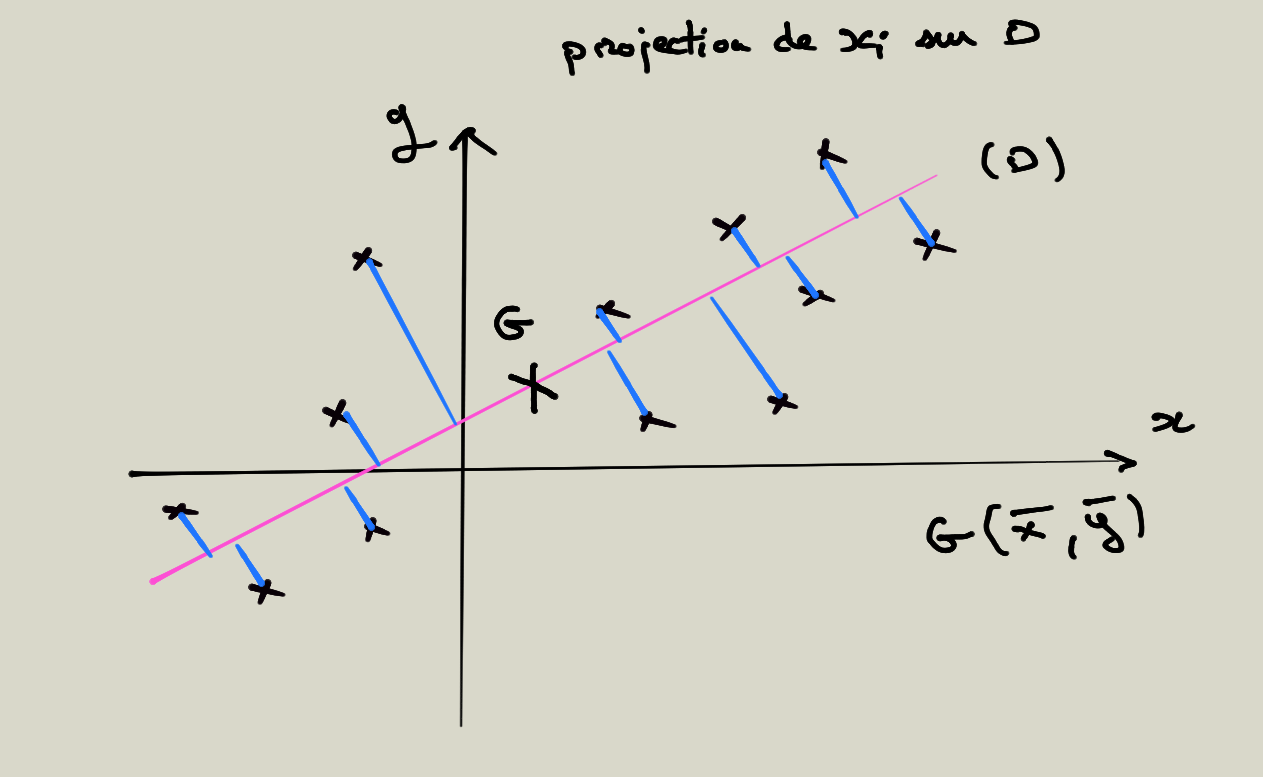 projection de xi sur D
y
(D)
G
x
G(x̄, ȳ)